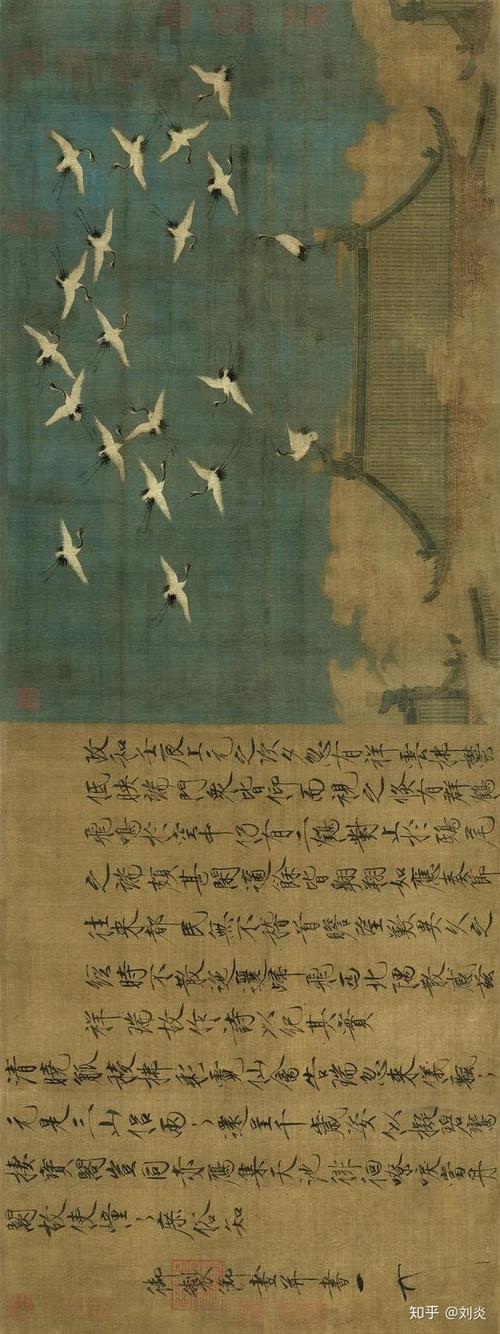 政和壬辰上元之次夕忽有祥雲拂鬱
低映端門衆皆仰而視之倏有群鶴
飛鳴於空中仍有二鶴對止於鴟尾
之端頗甚閑適餘皆翱翔如應奏節
往來都民無不稽首瞻望歎異久之
經時不散迤邐歸飛西北隅散感茲
祥瑞故作詩以紀其實
清曉觚稜拂彩霓仙禽告瑞忽來儀飄〻
元是三山侶兩〻還呈千歲姿似擬碧鸞
棲寶閣豈同赤鴈集天池徘徊嘹唳當丹
闕故使憧〻庶俗知
御製御畫并書
知乎 @刘炎